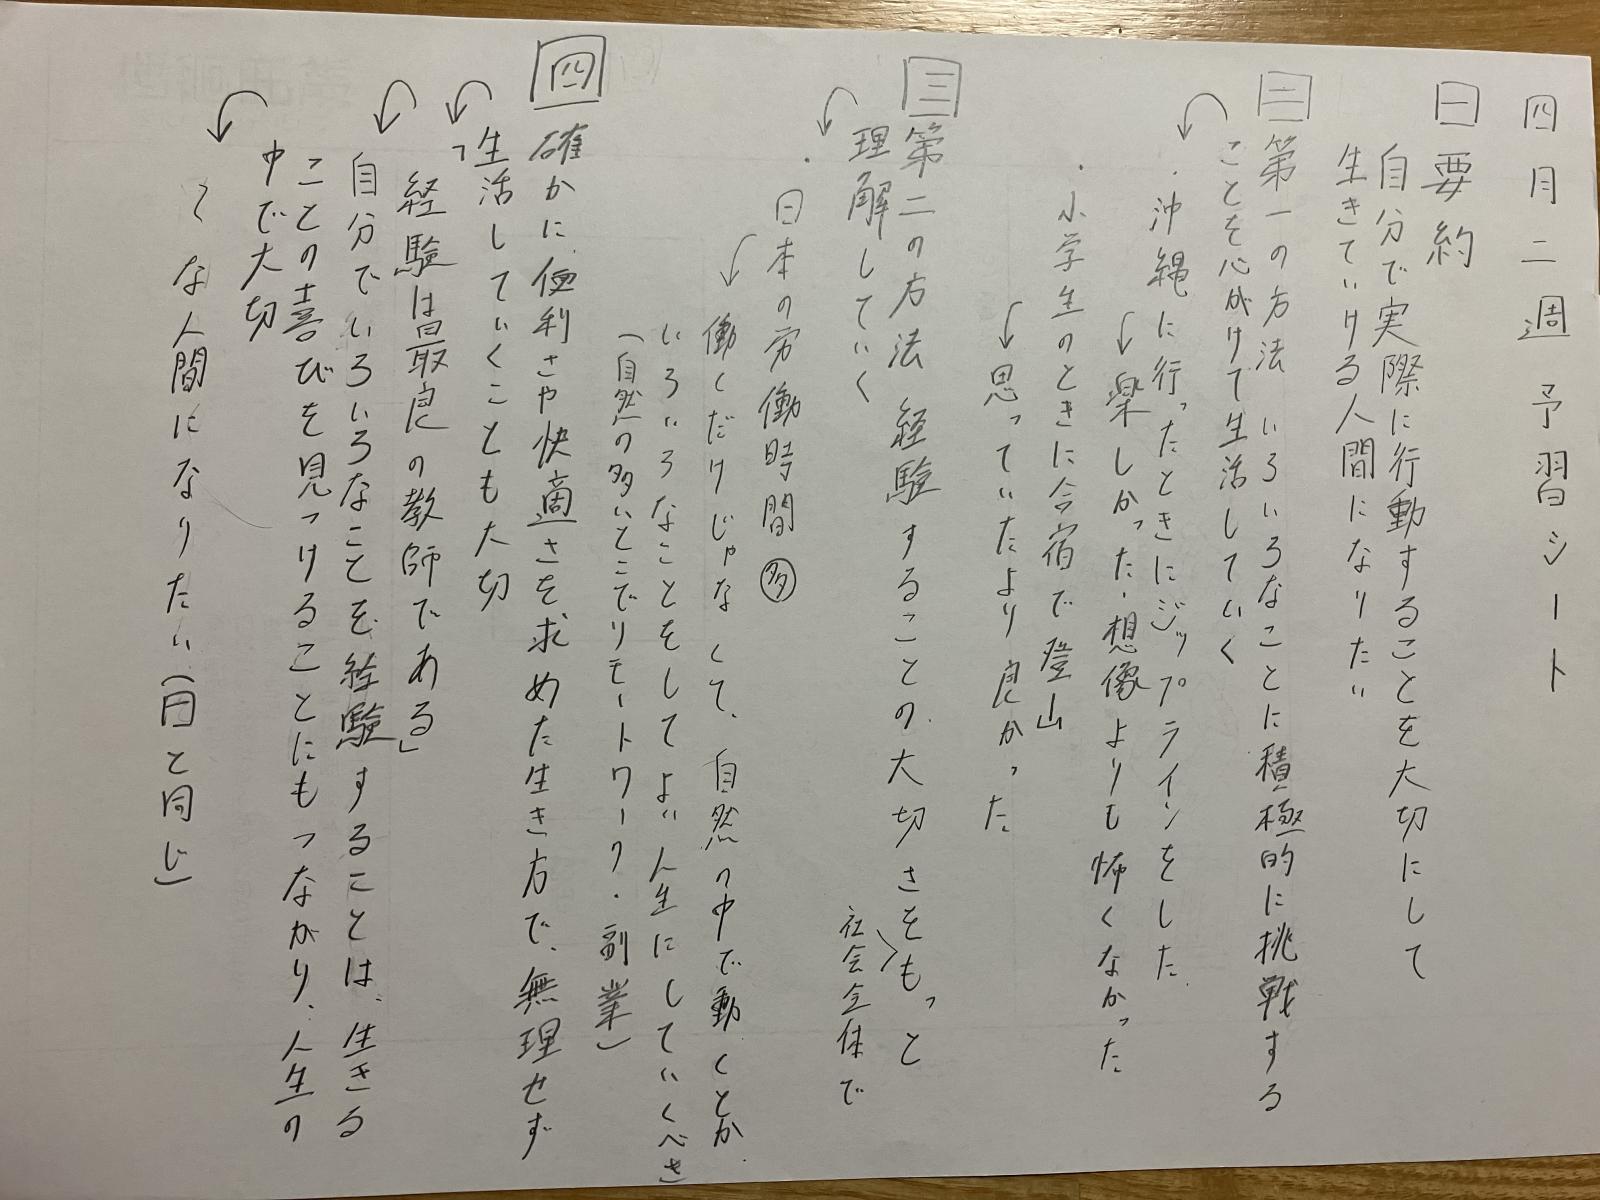 四月二週 予習シート
一 要約
自分で実際に行動することを大切にして
生きていける人間になりたい
二 第一の方法 いろいろなことに積極的に挑戦する
ことを心がけて生活していく
・沖縄に行ったときにジップラインをした
↓楽しかった・想像よりも怖くなかった
・小学生のときに合宿で登山
↓思っていたより良かった
三 第二の方法 経験することの大切さをもっと
社会全体で
理解していく
・日本の労働時間 多
↓働くだけじゃなくて、自然の中で動くとか
いろいろなことをしてよい人生にしていくべき
(自然の多いとこでリモートワーク・副業)
四 確かに便利さや快適さを求めた生き方で、無理せず
生活していくことも大切
「経験は最良の教師である」
自分でいろいろなことを経験することは、生きる
ことの喜びを見つけることにもつながり、人生の
中で大切
〜な人間になりたい(一と同じ)